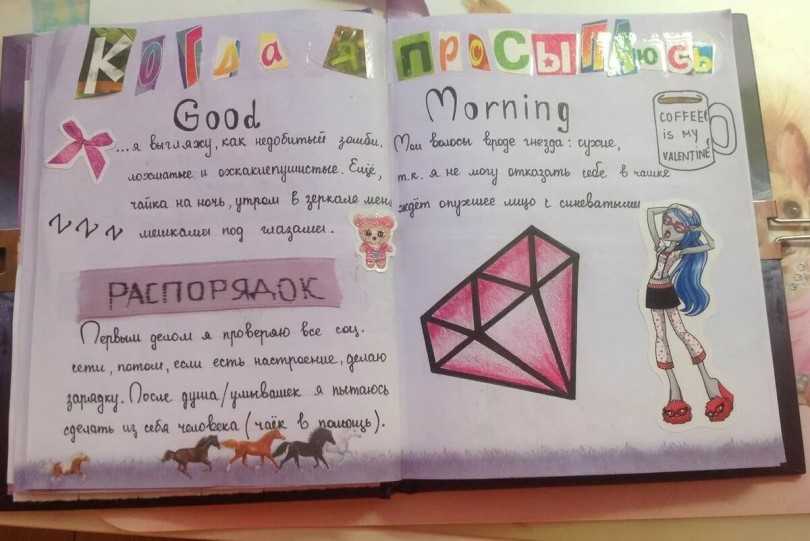 Когда я просыпаюсь
Good Morning
...я выгляжу, как недобитый зомби. Мои волосы вроде гнезда: сухие,
лохматые и ояхкакиепушистые. Ещё, т.к. я не могу отказать себе в чашке
чайка на ночь, утром в зеркале меня ждёт опухшее лицо с синеватыми
мешками под глазами.
COFFEE
IS MY
VALENTINE
ZZZ
РАСПОРЯДОК
Первым делом я проверяю все соц.
сети, потом, если есть настроение, делаю
зарядку. После душа/умывашек я пытаюсь
сделать из себя человека (чаёк в помощь).